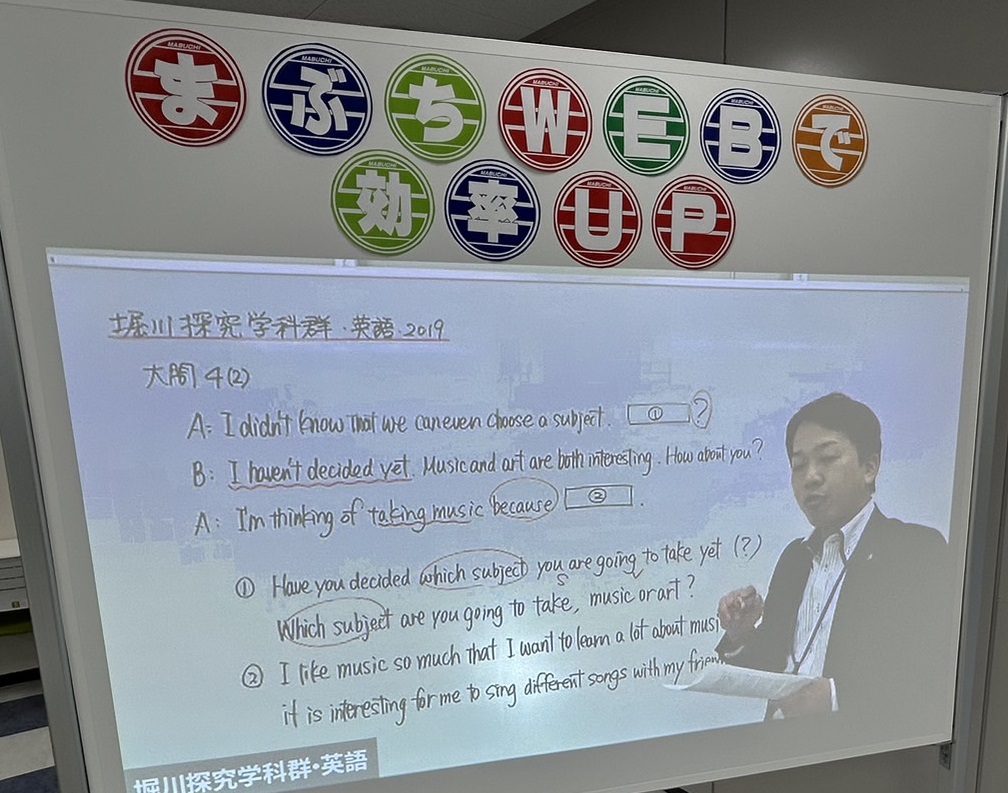 まぶちWEBで
効率UP
堀川探究学科群・英語・2019
大問4(2)
A: I didn't know that we can even choose a subject. ① ?
B: I haven't decided yet. Music and art are both interesting. How about you?
A: I'm thinking of taking music because ② .
① Have you decided which subject you are going to take yet (?)
S V
Which subject are you going to take, music or art?
② I like music so much that I want to learn a lot about musi
it is interesting for me to sing different songs with my frien
堀川探究学科群・英語